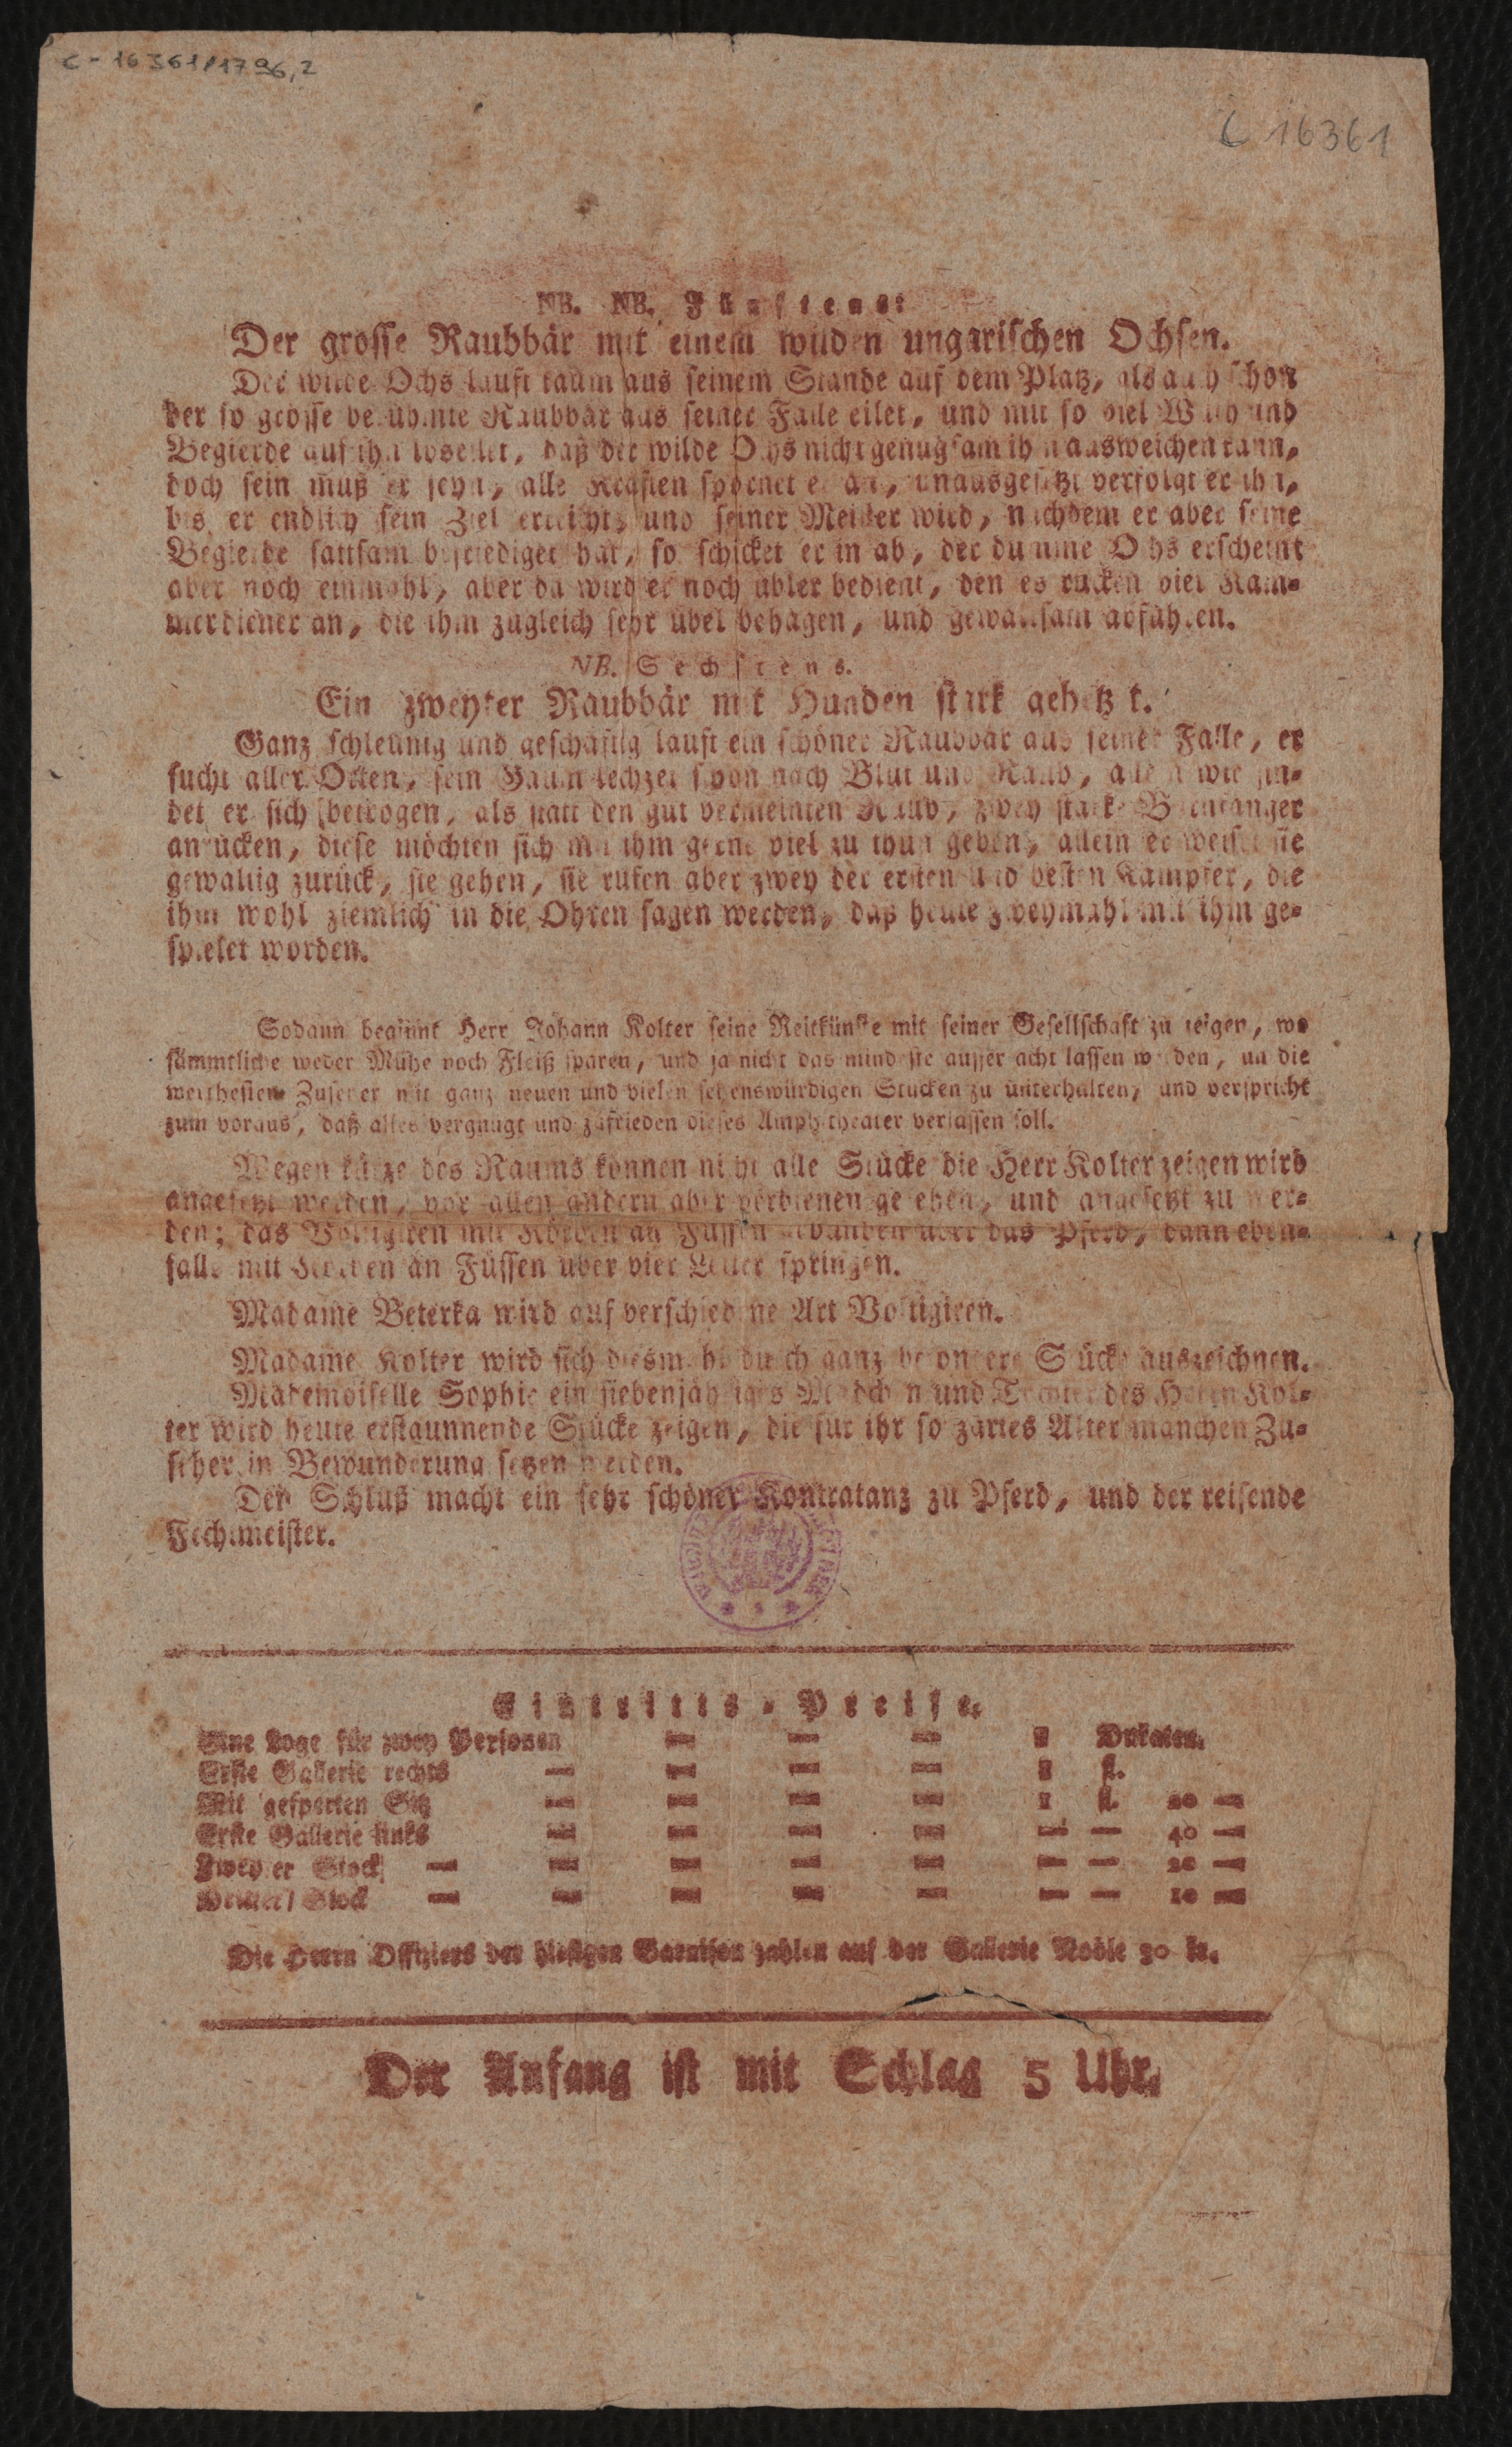 C-16361/1796,2
C 16361
NB. NB. Fünftens:
Der grosse Raubbär mit einem wilden ungarischen Ochsen.
Der wilde Ochs lauft kaum aus seinem Stande auf dem Platz, als auch schon
der so grosse berühmte Raubbär aus seiner Falle eilet, und mit so viel Wuth und
Begierde auf ihn loseilet, daß der wilde Ochs nicht genugsam ihn ausweichen kann,
doch sein muß er seyn, alle Kräften spannet er an, unausgesetzt verfolgt er ihn,
bis er endlich sein Ziel erreicht, und seiner Meister wird, nachdem er aber seine
Begierde sattsam befriediget hat, so schicket er in ab, der dumme Ochs erscheint
aber noch einmahl, aber da wird er noch übler bedient, den es rucken vier Kam-
merdiener an, die ihm zugleich sehr übel behagen, und gewaltsam abführen.
NB. Sechstens.
Ein zweyter Raubbär mit Hunden stark gehetzt.
Ganz schleunig und geschäftig lauft ein schöner Raubbär aus seiner Falle, er
sucht aller Orten, sein Gaum lechzet schon nach Blut und Raub, allein wie fin-
det er sich betrogen, als statt den gut vermeinten Raub, zwey starke Bärnfanger
anrücken, diese möchten sich mit ihm gerne viel zu thun geben, allein er weiset sie
gewaltig zurück, sie gehen, sie rufen aber zwey der ersten und besten Kämpfer, die
ihm wohl ziemlich in die Ohren sagen werden, daß heute zweymahl mit ihm ge-
spielet worden.
Sodann beginnt Herr Johann Kolter seine Reitkünste mit seiner Gesellschaft zu zeigen, wo
sämmtliche weder Mühe noch Fleiß sparen, und ja nicht das mindeste ausser acht lassen werden, um die
werthesten Zuseher mit ganz neuen und vielen sehenswürdigen Stucken zu unterhalten, und verspricht
zum voraus, daß alles vergnügt und zufrieden dieses Amphitheater verlassen soll.
Wegen kürze des Raums können nicht alle Stücke die Herr Kolter zeigen wird
angesetzt werden, vor allen andern aber verdienen gesehen, und angesetzt zu wer-
den; das Voltigiren mit Körben an Füssen gebunden über das Pferd, dann eben-
falls mit Körben an Füssen über vier springen.
Madame Beterka wird auf verschiedene Art Voltigiren.
Madame Kolter wird sich diesmahl durch ganz besondere Stücke auszeichnen.
Mademoiselle Sophie ein siebenjähriges Mädchen und Tochter des Herrn Kol-
ter wird heute erstaunnende Stücke zeigen, die für ihr so zartes Alter manchen Zu-
seher in Bewunderung setzen werden.
Den Schluß macht ein sehr schöner Kontratanz zu Pferd, und der reisende
Fechtmeister.
Eintritts-Preise.
Eine Loge für zwey Personen — — — 1 Dukaten.
Erste Gallerie rechts — — — — 1 fl.
Mit gesperten Sitz — — — — 1 fl. 20 —
Erste Gallerie links — — — — — — 40 —
Zweyter Stock — — — — — — — 20 —
Dritter Stock — — — — — — — 10 —
Die Herrn Offiziers der hiesigen Garnison zahlen auf der Gallerie Noble 30 kr.
Der Anfang ist mit Schlag 5 Uhr.